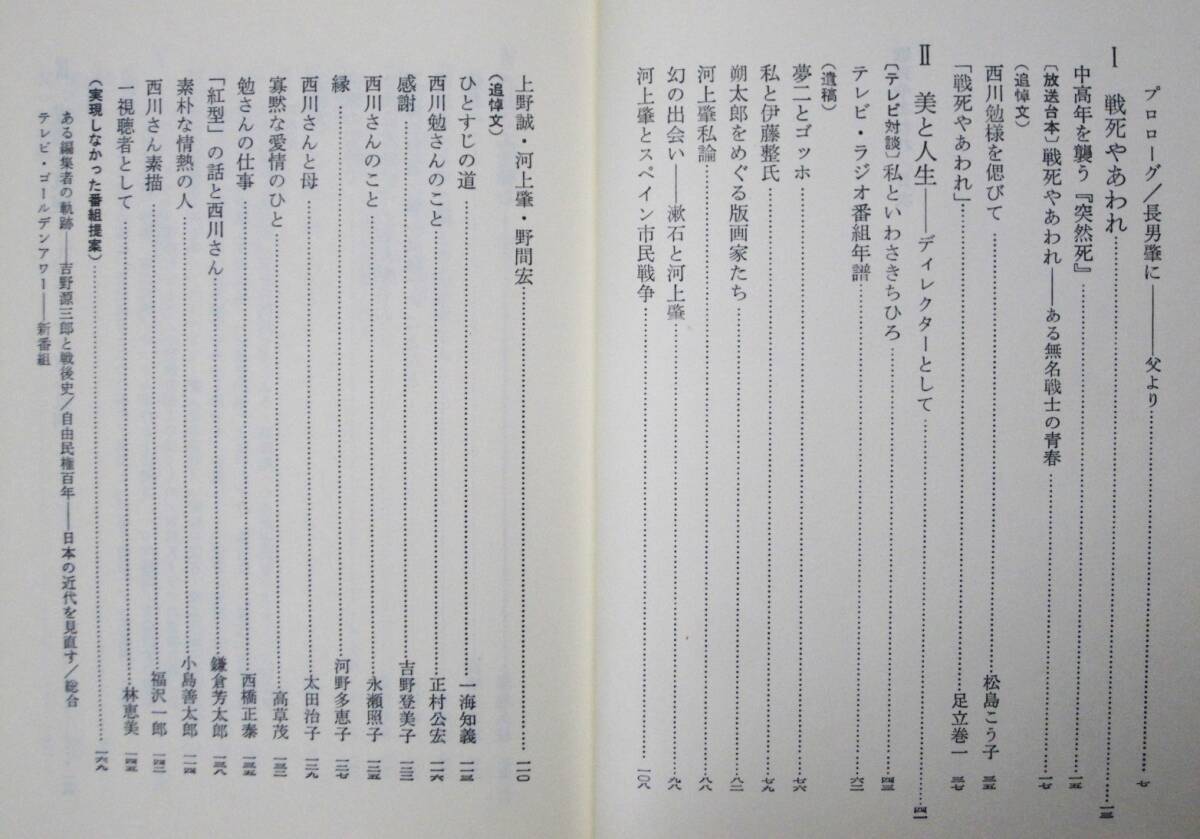 プロローグ／長男肇に――父より……七
Ⅰ 戦死やあわれ……一三
中高年を襲う『突然死』……一五
〔放送台本〕戦死やあわれ――ある無名戦士の青春……一七
（追悼文）
西川勉様を偲びて……松島こう子 三五
「戦死やあわれ」……足立巻一 三七
Ⅱ 美と人生――ディレクターとして……四一
〔テレビ対談〕私といわさきちひろ……四三
テレビ・ラジオ番組年譜……六二
（遺稿）
夢二とゴッホ……七六
私と伊藤整氏……七九
朔太郎をめぐる版画家たち……八二
河上肇私論……八八
幻の出会い――漱石と河上肇……九八
河上肇とスペイン市民戦争……一〇八
上野誠・河上肇・野間宏……一一〇
（追悼文）
ひとすじの道……一海知義 一一三
西川勉さんのこと……正村公宏 一一六
感謝……吉野登美子 一二二
西川さんのこと……永瀬照子 一二五
縁……河野多恵子 一二七
西川さんと母……太田治子 一二九
寡黙な愛情のひと……高草茂 一三二
勉さんの仕事……西橋正泰 一三五
「紅型」の話と西川さん……鎌倉芳太郎 一三八
素朴な情熱の人……小島善太郎 一一四
西川さん素描……福沢一郎 一四二
一視聴者として……林恵美 一四五
（実現しなかった番組提案）……一六九
ある編集者の軌跡――吉野源三郎と戦後史／自由民権百年――日本の近代を見直す／総合
テレビ・ゴールデンアワー――新番組